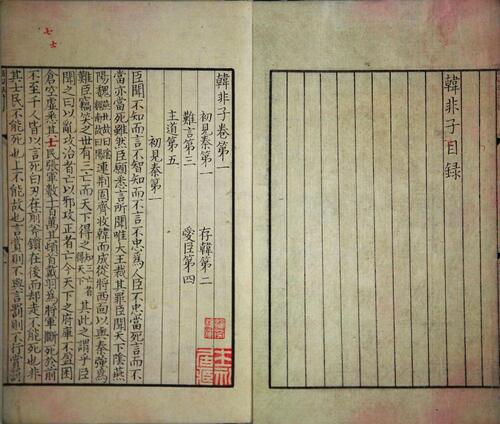 韓非子目録
韓非子卷第一
初見秦第一 存韓第二
難言第三 愛臣第四
主道第五
初見秦第一
臣聞不知而言不智知而不言不忠爲人臣不忠當死言而不
當亦當死雖然臣願悉言所聞唯大王裁其罪臣聞天下隂燕
陽魏連荆固齊收韓而成從將西面以與秦強爲
難臣竊笑之世有三亡而天下得之其此之謂乎臣
聞之曰以亂攻治者亡以邪攻正者亡今天下之府庫不盈囷
倉空虚悉其士民張軍數十百萬其頓首戴羽爲將軍斷死於前
不至千人皆以言死白刃在前斧鑕在後而却走不能死也非
其士民不能死也上不能故也言賞則不與言罰則不行賞罰
七
士